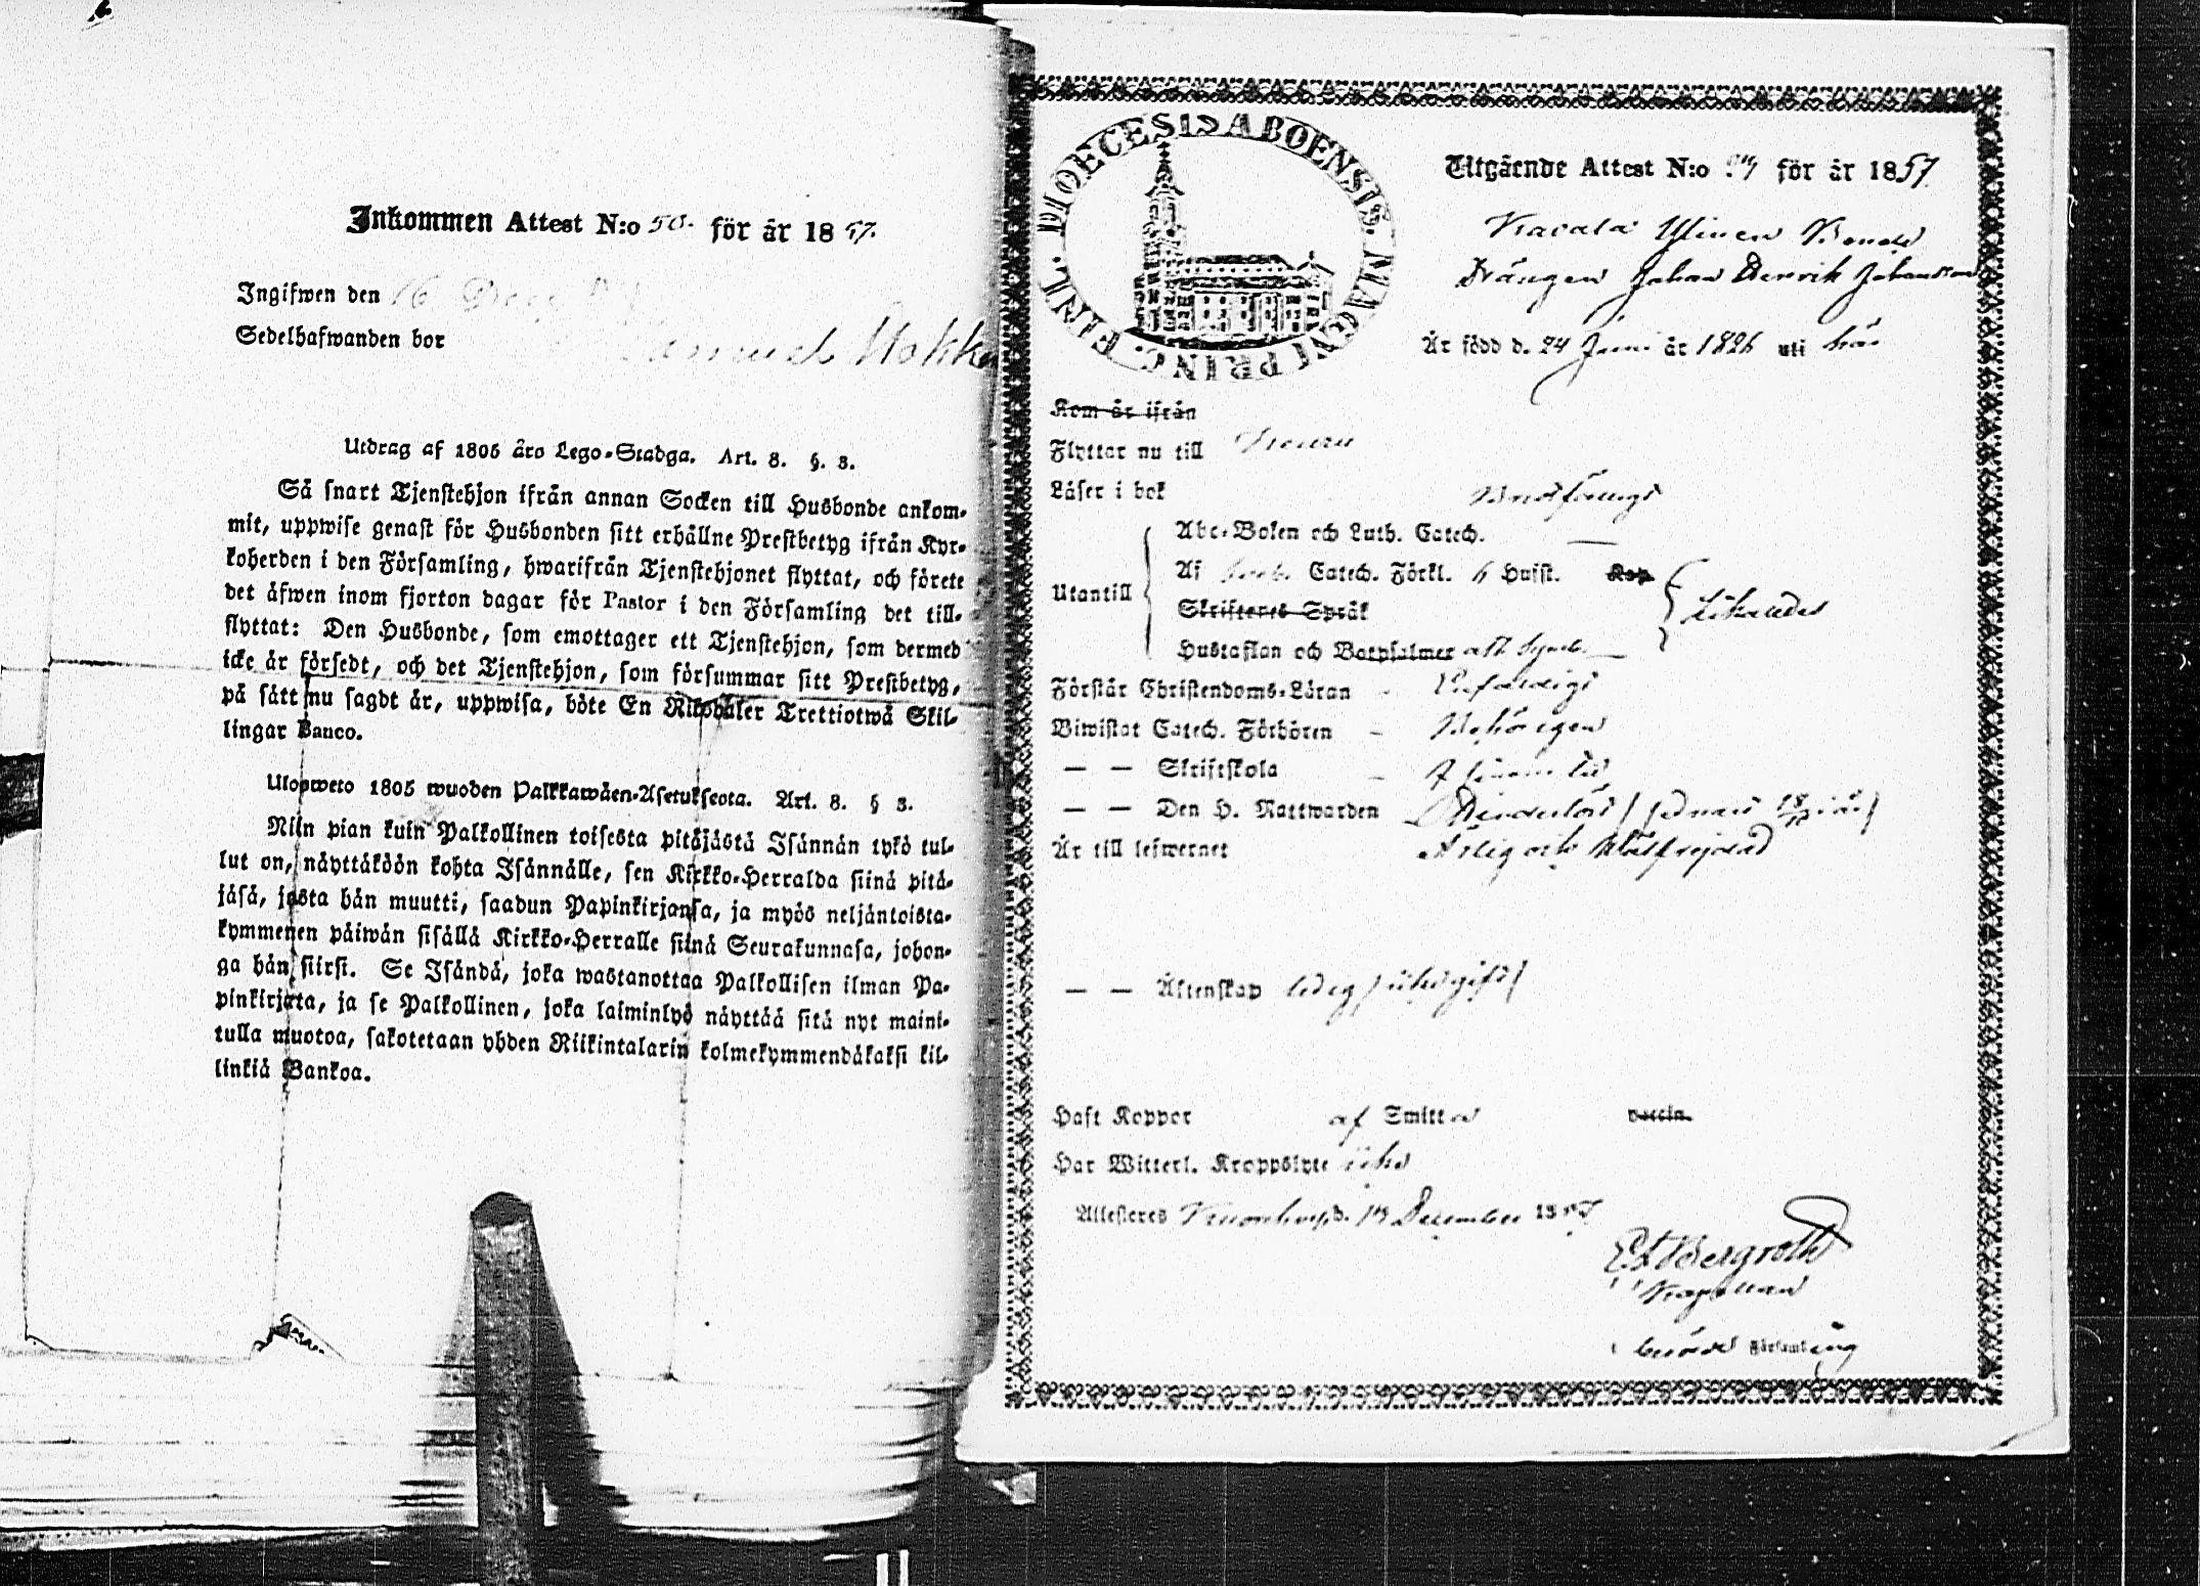 Inkommen Attest N:o 50. för år 1857.
Ingifwen den 16 Dec.
Sedelhafwanden bor Samuel
Utdrag af 1805 års Lego-Stadga. Art. 8. §. 3.
Så snart Tjenstehjon ifrån annan Socken till Husbonde ankom-
mit, uppwise genast för Husbonden sitt erhållne Prestbetyg ifrån Kyr-
koherden i den Församling, hwarifrån Tjenstehjonet flyttat, och förete
det äfwen inom fjorton dagar för Pastor i den Församling det till-
flyttat: Den Husbonde, som emottager ett Tjenstehjon, som dermed
icke är försedt, och det Tjenstehjon, som försummar sitt Prestbetyg,
på sätt nu sagdt är, uppwisa, böte En Riksdaler Trettiotwå Skil-
lingar Banco.
Ulosweto 1805 wuoden Palkkawäen-Asetuksesta. Art. 8. § 3.
Niin pian kuin Palkollinen toisesta pitäjästä Isännän tykö tul-
lut on, näyttäköön kohta Isännälle, sen Kirkko-Herralda siinä pitä-
jäsä, josta hän muutti, saadun Papinkirjansa, ja myös neljäntoista-
kymmenen päiwän sisällä Kirkko-Herralle siinä Seurakunnasa, johon-
ga hän siirsi. Se Isändä, joka wastanottaa Palkollisen ilman Pa-
pinkirjata, ja se Palkollinen, joka laiminlyö näyttää sitä nyt maini-
tulla muotoa, sakotetaan yhden Riikintalarin kolmekymmendäkaksi kil-
linkiä Bankoa.
DIOECESIS ABOENSIS. MAGNI PRINC. FINL.
Utgående Attest N:o för år 1857
Drängen Johan Henrik Johansson
Är född d. 24 Juni år 1826 uti här
Kom år ifrån
Flyttar nu till
Läser i bok
Abc-Boken och Luth. Catech. —
Utantill
Af Catech. Förkl. 6 Hufst. Kap.
Skriftenes Språk
Likaledes
Hustaflan och Botpsalmer
Förstår Christendoms-Läran -
Biwistat Catech. Förhören - Behörigen
— — Skriftskola -
— — Den H. Nattwarden
Är till lefwernet Ärlig och Wälfrejdad
— — Äktenskap ledig
Haft Koppor af Smitta vaccin.
Har Witterl. Kroppslyte icke
Attesteres d. December 1857
Bergroth
Kapellan
Församling